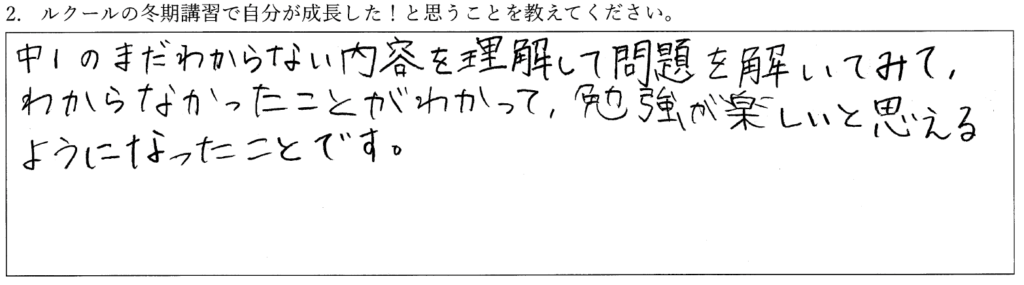 2. ルクールの冬期講習で自分が成長した！と思うことを教えてください。
中1のまだわからない内容を理解して問題を解いてみて,
わからなかったことがわかって,勉強が楽しいと思える
ようになったことです。